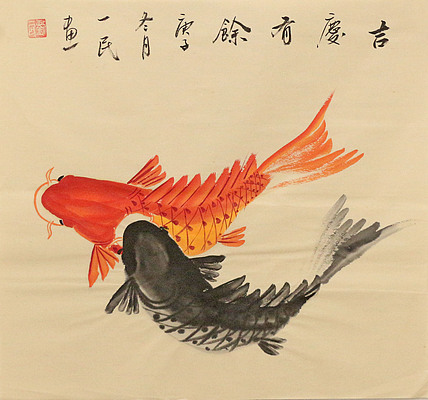 吉慶有餘庚子冬月一民畫